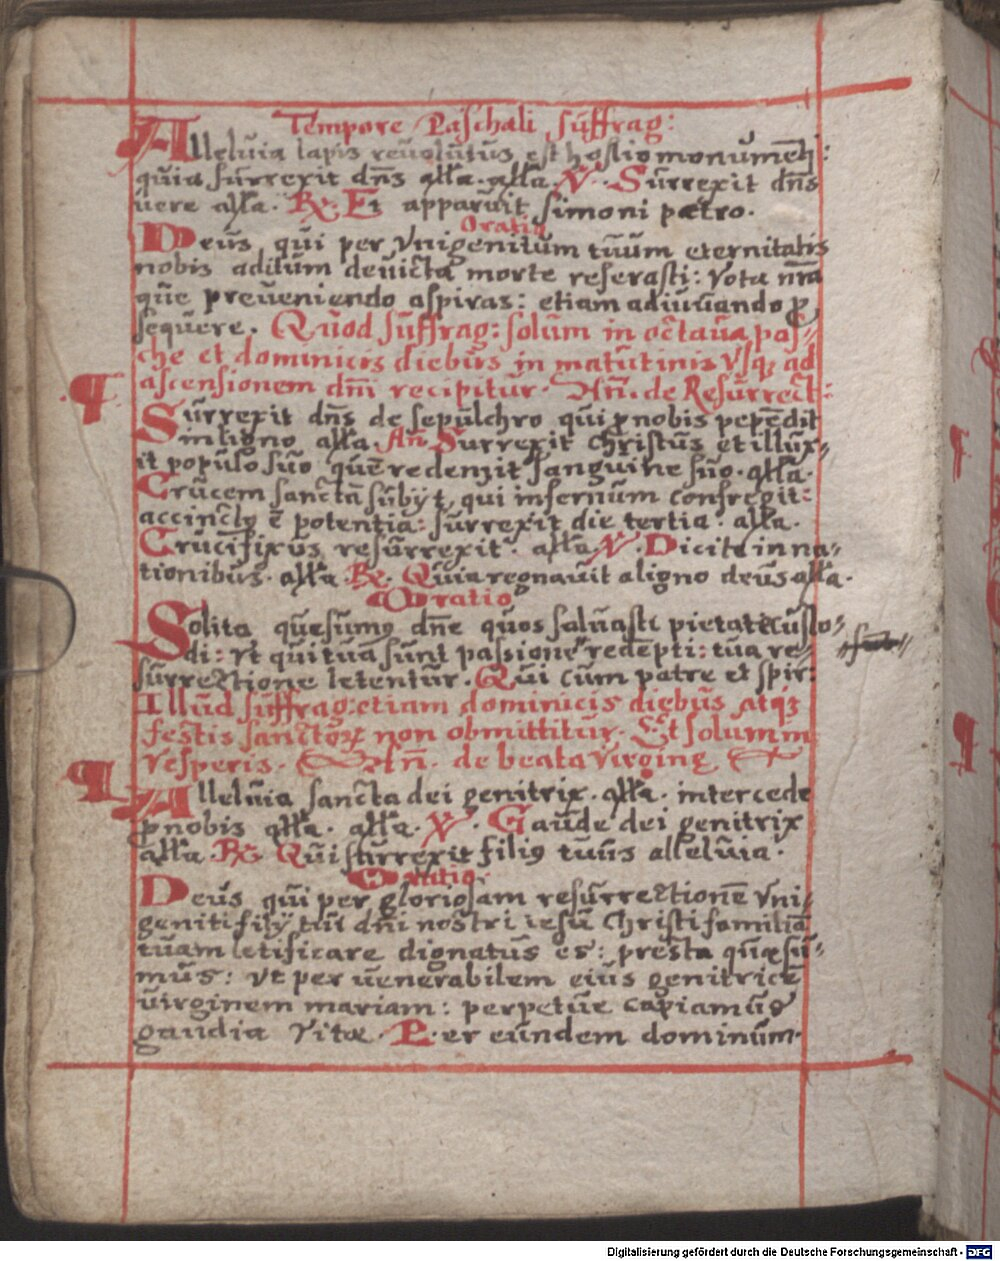 Tempore Paschali suffrag:
Alleluia lapis reuolutus est hostio monumēti:
quia surrexit dn̄s alla. alla. V. Surrexit dn̄s
uere alla. R. Et apparuit simoni petro.
Oratio
Deus qui per vnigenitum tuum eternitatis
nobis aditum deuicta morte reserasti: vota nr̄a
que preueniendo aspiras: etiam adiuuando ꝓ
sequere. Quod suffrag: solum in octaua pas-
che et dominicis diebus in matutinis vsqꝫ ad
ascensionem dn̄i recipitur. An̄. de Resurrect:
¶ Surrexit dn̄s de sepulchro qui ꝓ nobis pepēdit
in ligno alla. An̄ Surrexit Christus et illux-
it populo suo quē redemit sanguine suo. alla.
Crucem sanctā subijt, qui infernum confregit:
accinctꝰ ē potentia: surrexit die tertia. alla.
Crucifixus resurrexit. alla V. Dicite in na-
tionibus. alla. R. Quia regnauit a ligno deus alla.
Oratio
Solita quesumꝰ dn̄e quos saluasti pietate custo-
di: vt qui tua sunt passione redēpti: tua re-
surrectione letentur. Qui cum patre et spir:
Illud suffrag: etiam dominicis diebus atqꝫ
festis sanctoꝝ non obmittitur. Et solum in
vesperis. An̄. de beata virgine
¶ Alleluia sancta dei genitrix. alla. intercede
ꝓ nobis alla. alla. V. Gaude dei genitrix
alla. R. Qui surrexit filiꝰ tuus alleluia.
Oratio.
Deus qui per gloriosam resurrectionē vni-
geniti filij tui dn̄i nostri iesu Christi familiā
tuam letificare dignatus es: presta quæsu-
mus: vt per uenerabilem eius genitricē
uirginem mariam: perpetue capiamus
gaudia vitæ. Per eundem dominum.
Digitalisierung gefördert durch die Deutsche Forschungsgemeinschaft - DFG